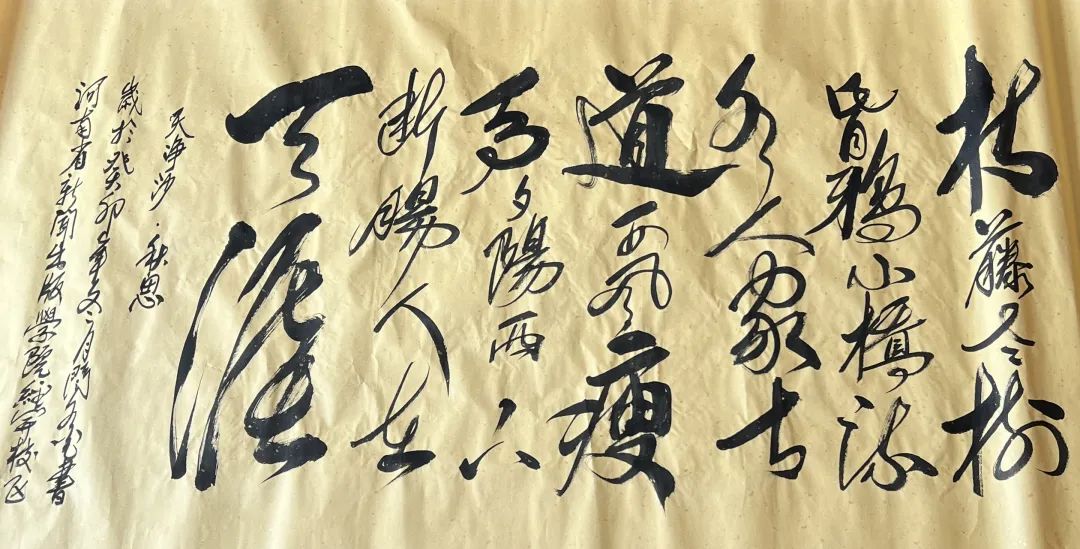 枯藤老樹
昏鴉小橋流
水人家古
道西風瘦
馬夕陽西下
斷腸人在
天涯
天淨沙·秋思
歲於癸卯年冬月 書
河南省新聞出版學院